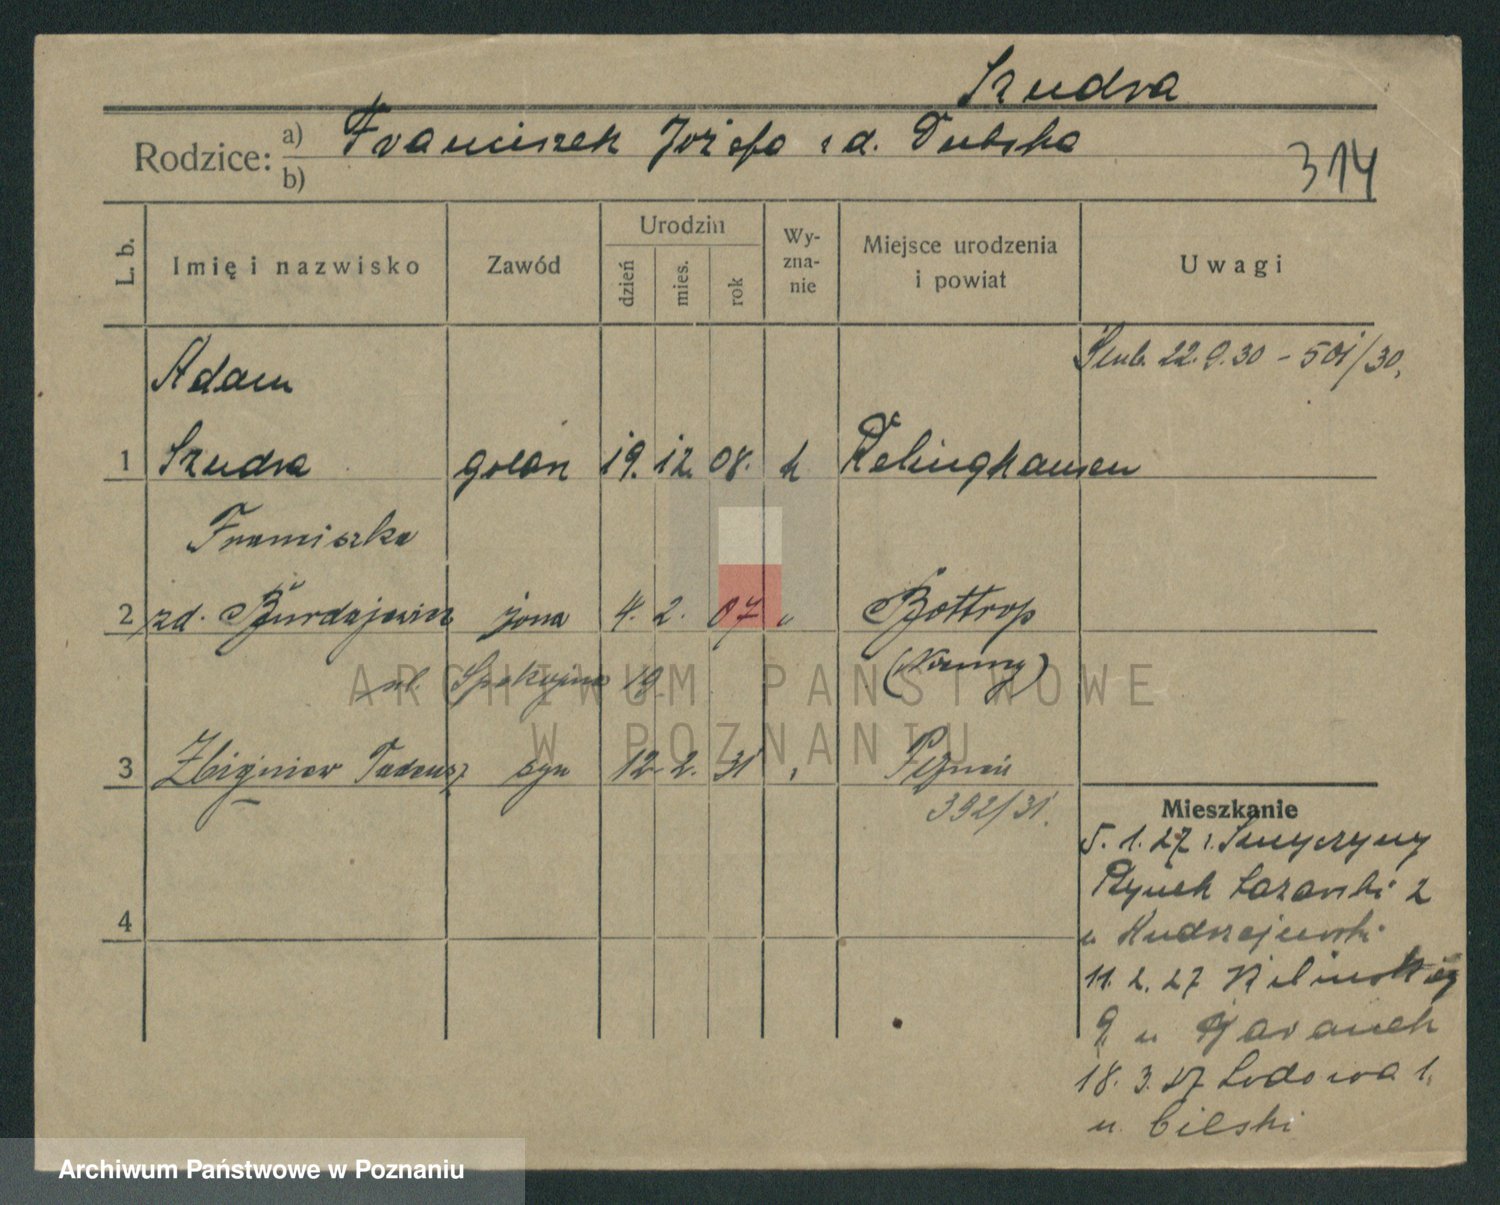 Szudra
Rodzice: a) Franciszek Józefa z d. Dubska
b)
314
L. b.
Imię i nazwisko
Zawód
Urodzin
dzień
mies.
rok
Wy-
zna-
nie
Miejsce urodzenia
i powiat
Uwagi
Adam
Ślub. 22.9.30 - 501/30.
1 Szudra golarz 19. 12. 08. k Relinghausen
Franciszka
2 zd. Burdajewicz żona 4. 2. 07 " Bottrop
ul. Spokojna 19 (Niemcy)
ARCHIWUM PAŃSTWOWE
W POZNANIU
3 Zbigniew Tadeusz syn 12. 2. 31 " Poznań
392/31.
Mieszkanie
5. 1. 27 z
Rynek Łazarski 2
u
11. 2. 27
9 u
18. 3. 27 Lodowa 1.
u. Cielski
4
Archiwum Państwowe w Poznaniu